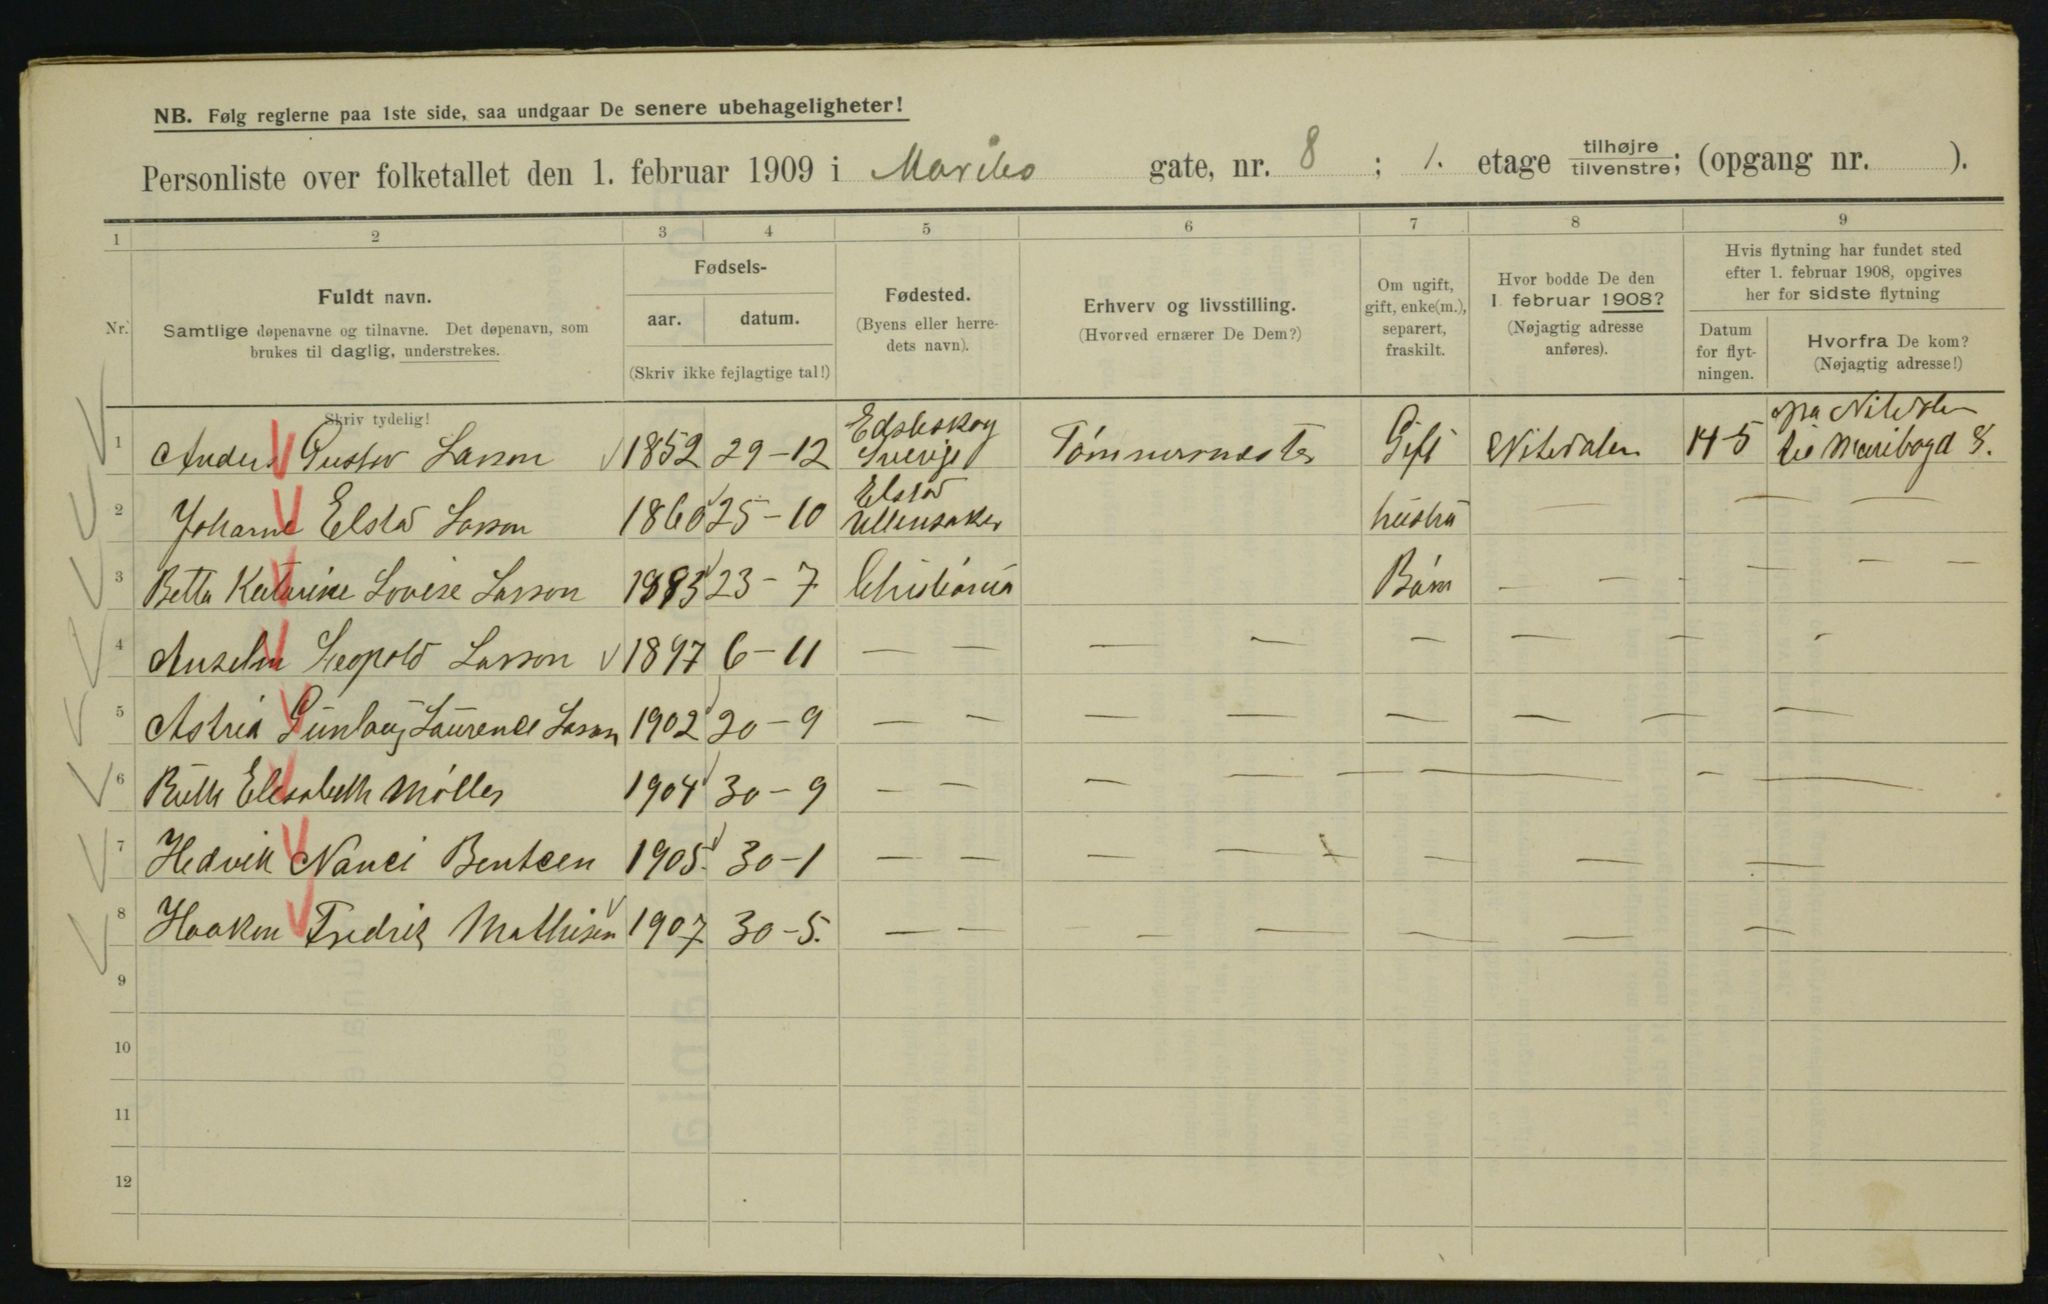 NB. Følg reglerne paa 1ste side, saa undgaar De senere ubehageligheter!
Personliste over folketallet den 1. februar 1909 i Maribo gate, nr. 8 ; 1. etage tilhøjre tilvenstre; (opgang nr. ).
1 2 3 4 5 6 7 8 9
Nr.
Fuldt navn.
Samtlige døpenavne og tilnavne. Det døpenavn, som
brukes til daglig, understrekes.
Skriv tydelig!
Fødsels-
aar. datum.
(Skriv ikke fejlagtige tal!)
Fødested.
(Byens eller herre-
dets navn).
Erhverv og livsstilling.
(Hvorved ernærer De Dem?)
Om ugift,
gift, enke(m.),
separert,
fraskilt.
Hvor bodde De den
1 februar 1908?
(Nøjagtig adresse
anføres).
Hvis flytning har fundet sted
efter 1. februar 1908, opgives
her for sidste flytning
Datum
for flyt-
ningen.
Hvorfra De kom?
(Nøjagtig adresse!)
1 Anders Gustav Larson 1852 29-12 Edsleskog Sverige Tømmermester Gift Nitedalen 14-5 fra Nitedalen til Maribogd 8.
2 Johanne Elstad Larson 1860 25-10 Elstad Ullensaker hustru — — —
3 Betta Katarine Lovise Larson 1883 23-7 Christiania Barn — — - — — —
4 Anselm Leopold Larson 1897 6-11 — — — — — — — -
5 Astrid Gunlaug Laurence Larson 1902 20-9 — — — — — — — —
6 Ruth Elisabeth Møller 1904 30-9 — — — — — — — —
7 Hedvik Nanci Bentcen 1905 30-1 — — — — — — — —
8 Haakon Fredrik Mathisen 1907 30-5. — — — — — — —
9
10
11
12